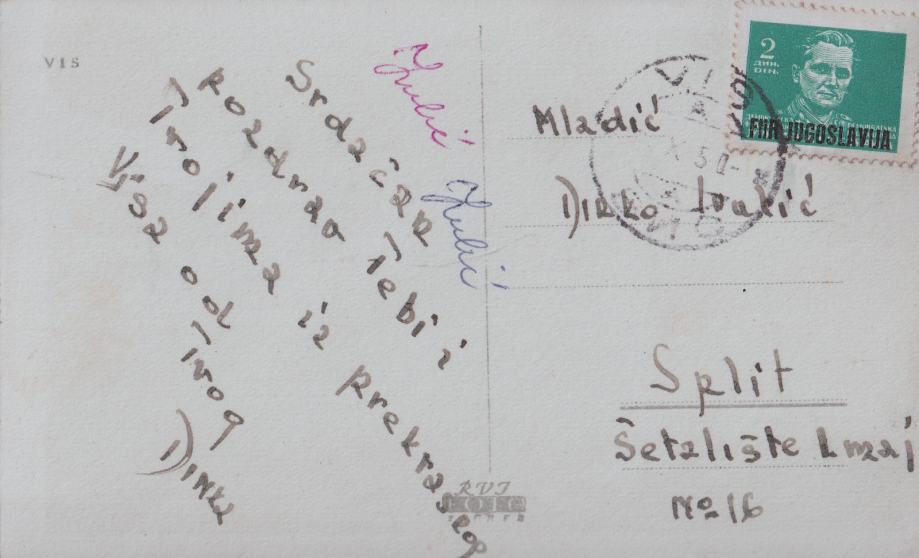 VIS
Srdačan
pozdrav Tebi i
Tvojima iz prekrasnog
Visa od Tvog
Dinka
Mladić
Dinko
Split
Šetalište 1 maj
No 16
2
ДИН.
DIN.
FNR JUGOSLAVIJA
VIS
RVI
FOTO
ZAGREB